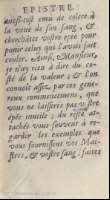 EPISTRE.
aussi-tost emu de colere à
la veuë de son sang, &
cherchâtes vostre épée pour
punir celuy qui l'avoit fait
couler. Monsieur,
je n'ay rien à dire du co-
sté de la valeur; & l'on
connoist assez par ces gene-
reux commencemens, que
vous ne laisserez pas vostre
épée inutile; du costé
vous à re-
garder les exemples que
vous fournissent vos Mai-
stres, & vostre sang: faites